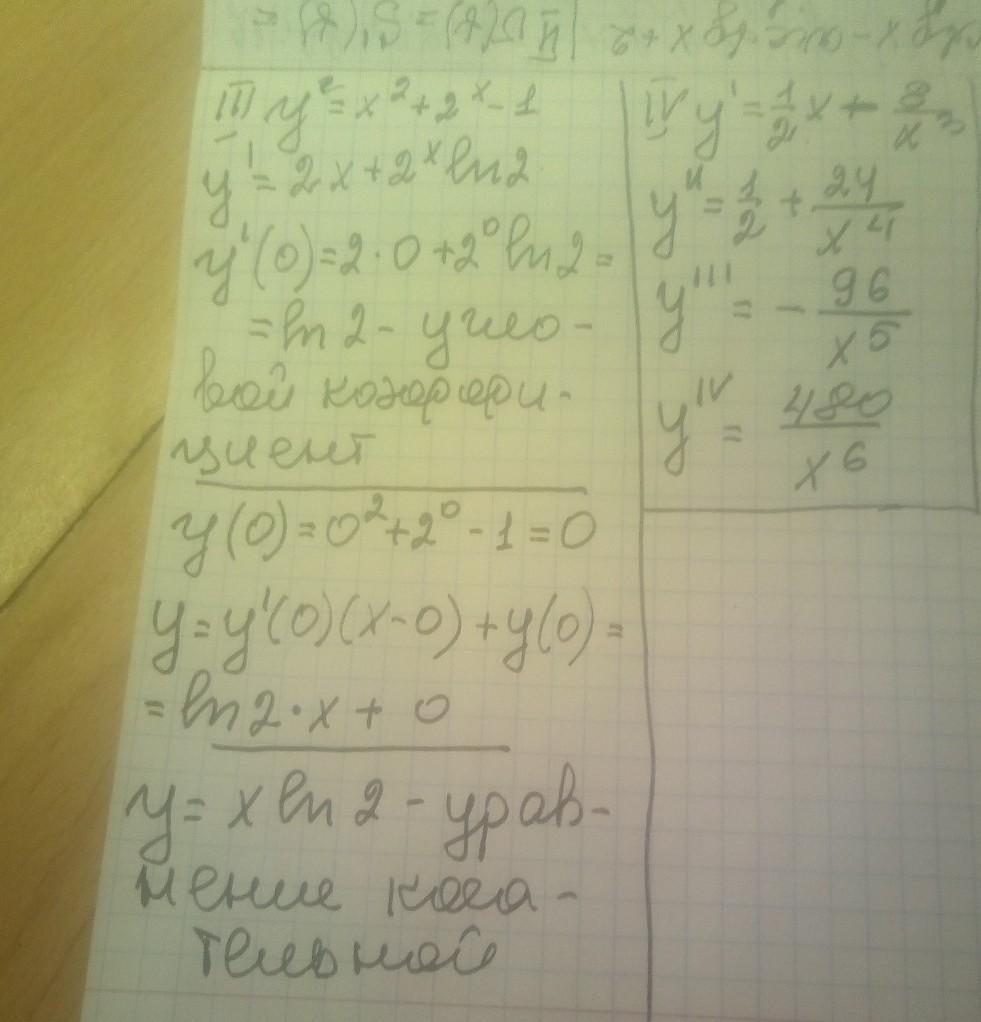 III y = x² + 2ˣ - 1
y' = 2x + 2ˣ ln2
y'(0) = 2 · 0 + 2⁰ ln2 =
= ln 2 - угло-
вой коэффи-
циент
y(0) = 0² + 2⁰ - 1 = 0
y = y'(0)(x-0) + y(0) =
= ln2 · x + 0
y = x ln 2 - урав-
нение каса-
тельной
IV y' = 1/2 x + 8/x³
y'' = 1/2 + 24/x⁴
y''' = - 96/x⁵
yᴵⱽ = 480/x⁶